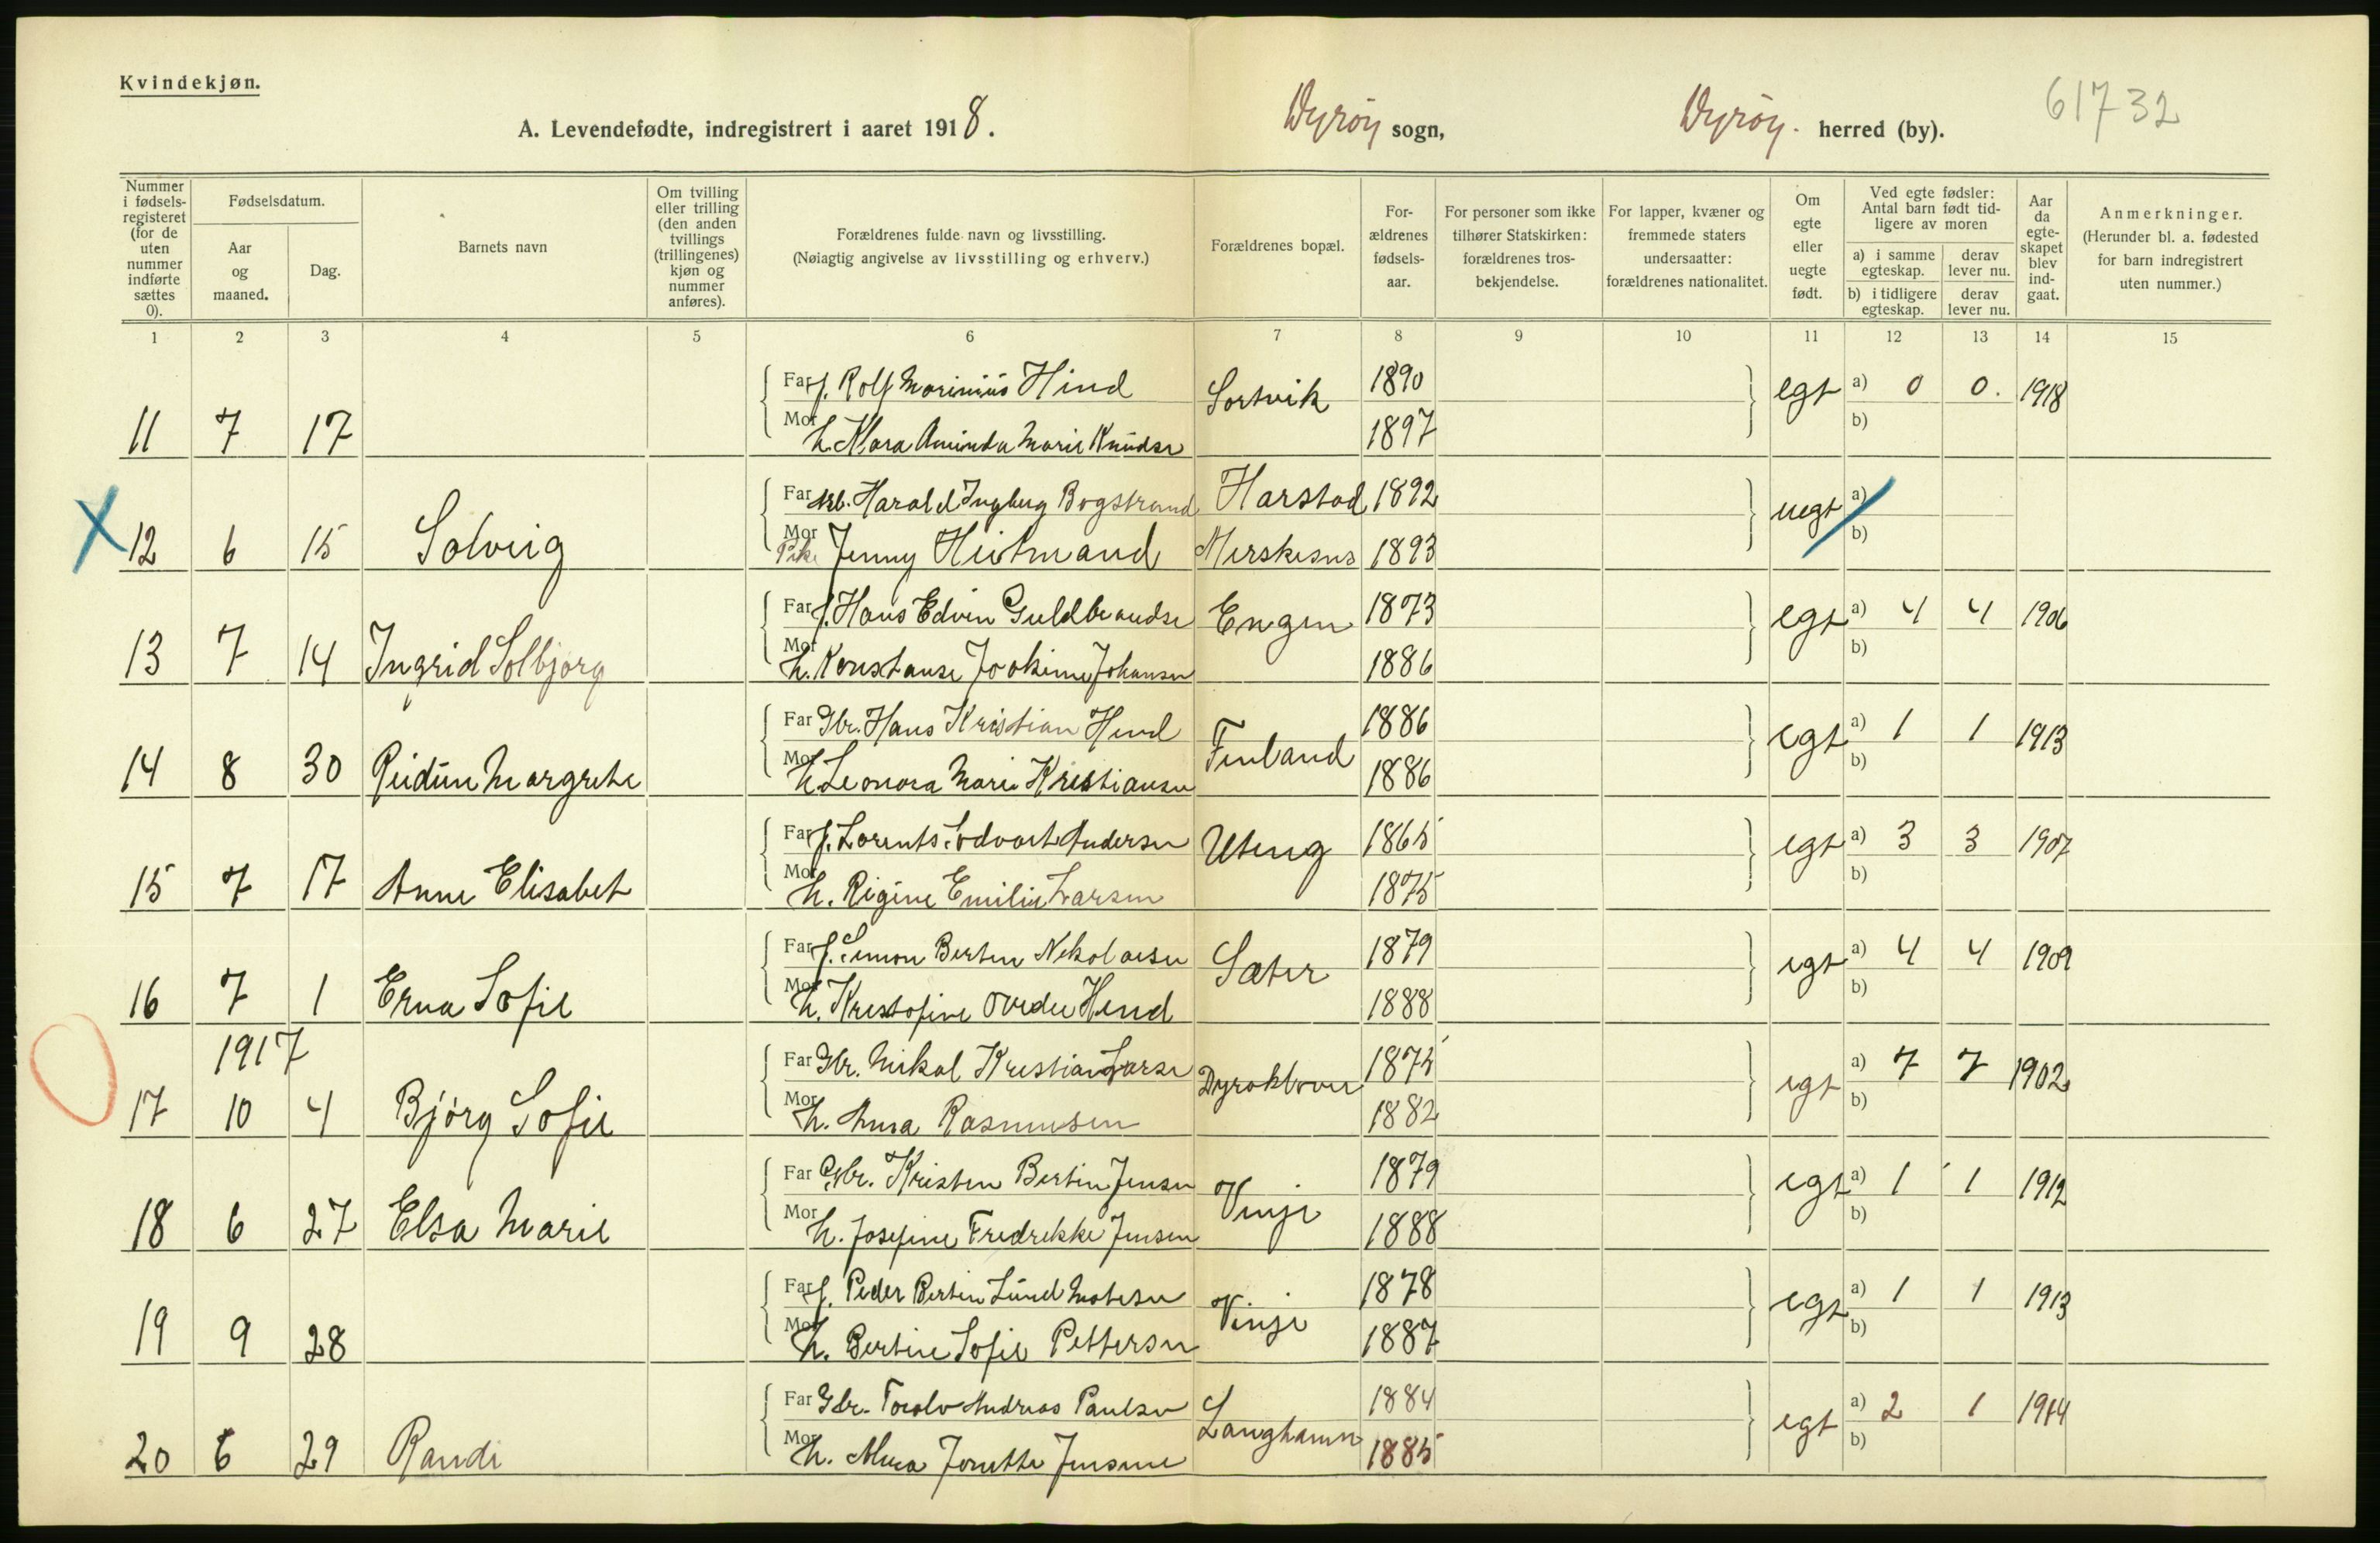 Kvindekjøn.
A. Levendefødte, indregistrert i aaret 1918. Dyrøy sogn, Dyrøy. herred (by). 61732
Nummer i fødsels-registeret (for de uten nummer indførte sættes 0).
Fødselsdatum.
Aar og maaned.
Dag.
Barnets navn
Om tvilling eller trilling (den anden tvillings (trillingenes) kjøn og nummer anføres).
Forældrenes fulde navn og livsstilling.
(Nøiagtig angivelse av livsstilling og erhverv.)
Forældrenes bopæl.
For-ældrenes fødsels-aar.
For personer som ikke tilhører Statskirken: forældrenes tros-bekjendelse.
For lapper, kvæner og fremmede staters undersaatter: forældrenes nationalitet.
Om egte eller uegte født.
Ved egte fødsler: Antal barn født tid-ligere av moren
a) i samme egteskap.
derav lever nu.
b) i tidligere egteskap.
derav lever nu.
Aar da egte-skapet blev ind-gaat.
Anmerkninger.
(Herunder bl. a. fødested for barn indregistrert uten nummer.)
1 2 3 4 5 6 7 8 9 10 11 12 13 14 15
Far f. Rolf Marinius Hind Sortvik 1890 egt a) 0 0. 1918
11 7 17 Mor h. Klara Aminda Marie Knudsn 1897 b)
Far Harald Ingberg Bogstrand Harstad 1892 uegt a)
X 12 6 15 Solveig Mor Pike Jenny Heitmand 1893 b)
Far f. Hans Edvin Guldbrandsn Engen 1873 egt a) 4 4 1906
13 7 14 Ingrid Solbjørg Mor h. Konstanse Joakime Johansen 1886 b)
Far Gbr. Hans Kristian Hind Finland 1886 egt a) 1 1 1913
14 8 30 Reidun Margrete Mor h. Leonora Marie Kristiansen 1886 b)
Far f. Lorents Edvart Andersen Uteng 1865 egt a) 3 3 1907
15 7 17 Anne Elisabet Mor h. Rigine Emilie Larsen 1875 b)
Far f. Simon Bertin Nikolaisen Sæter 1879 egt a) 4 4 1909
16 7 1 Erna Sofie Mor h. Kristofine Hind 1888 b)
1917 Far Gbr. Mikal Kristian Larsn 1875 egt a) 7 7 1902
17 10 4 Bjørg Sofie Mor h. Anna Rasmussen 1882 b)
Far Gbr. Kristen Bertin Jensen Vinje 1879 egt a) 1 1 1912
18 6 27 Elsa Marie Mor h. Josefine Fredrikke Jensen 1888 b)
Far f. Peder Bertin Lund Matesen Vinje 1878 egt a) 1 1 1913
19 9 28 Mor h. Bertine Sofie Pettersn 1887 b)
Far Gbr. Torolv Andreas Paulsen Langhamn 1884 egt a) 2 1 1914
20 6 29 Randi Mor h. Alma Jonette Jensine 1885 b)